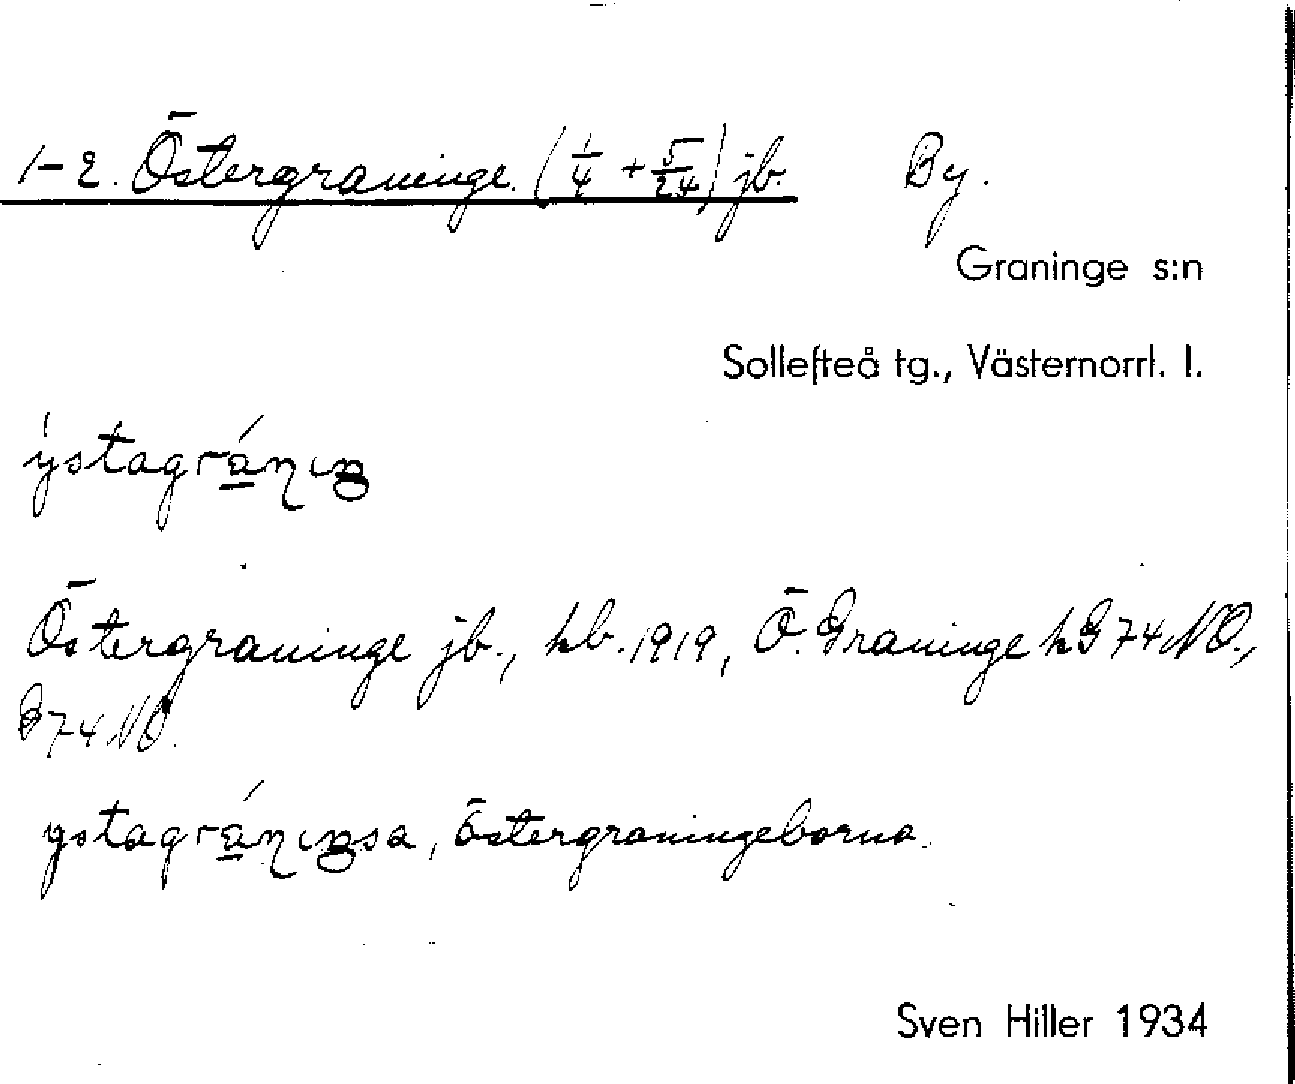 1-2. Östergraninge. (1/4 + 5/24) jb. By.
Graninge s:n
Sollefteå tg., Västernorrl. l.
ýstagránıŋ
Östergraninge jb., kb. 1919, Ö. Graninge hG 74 NO.,
G 74 NO.
ystagránıŋsa, östergraningeborna.
Sven Hiller 1934